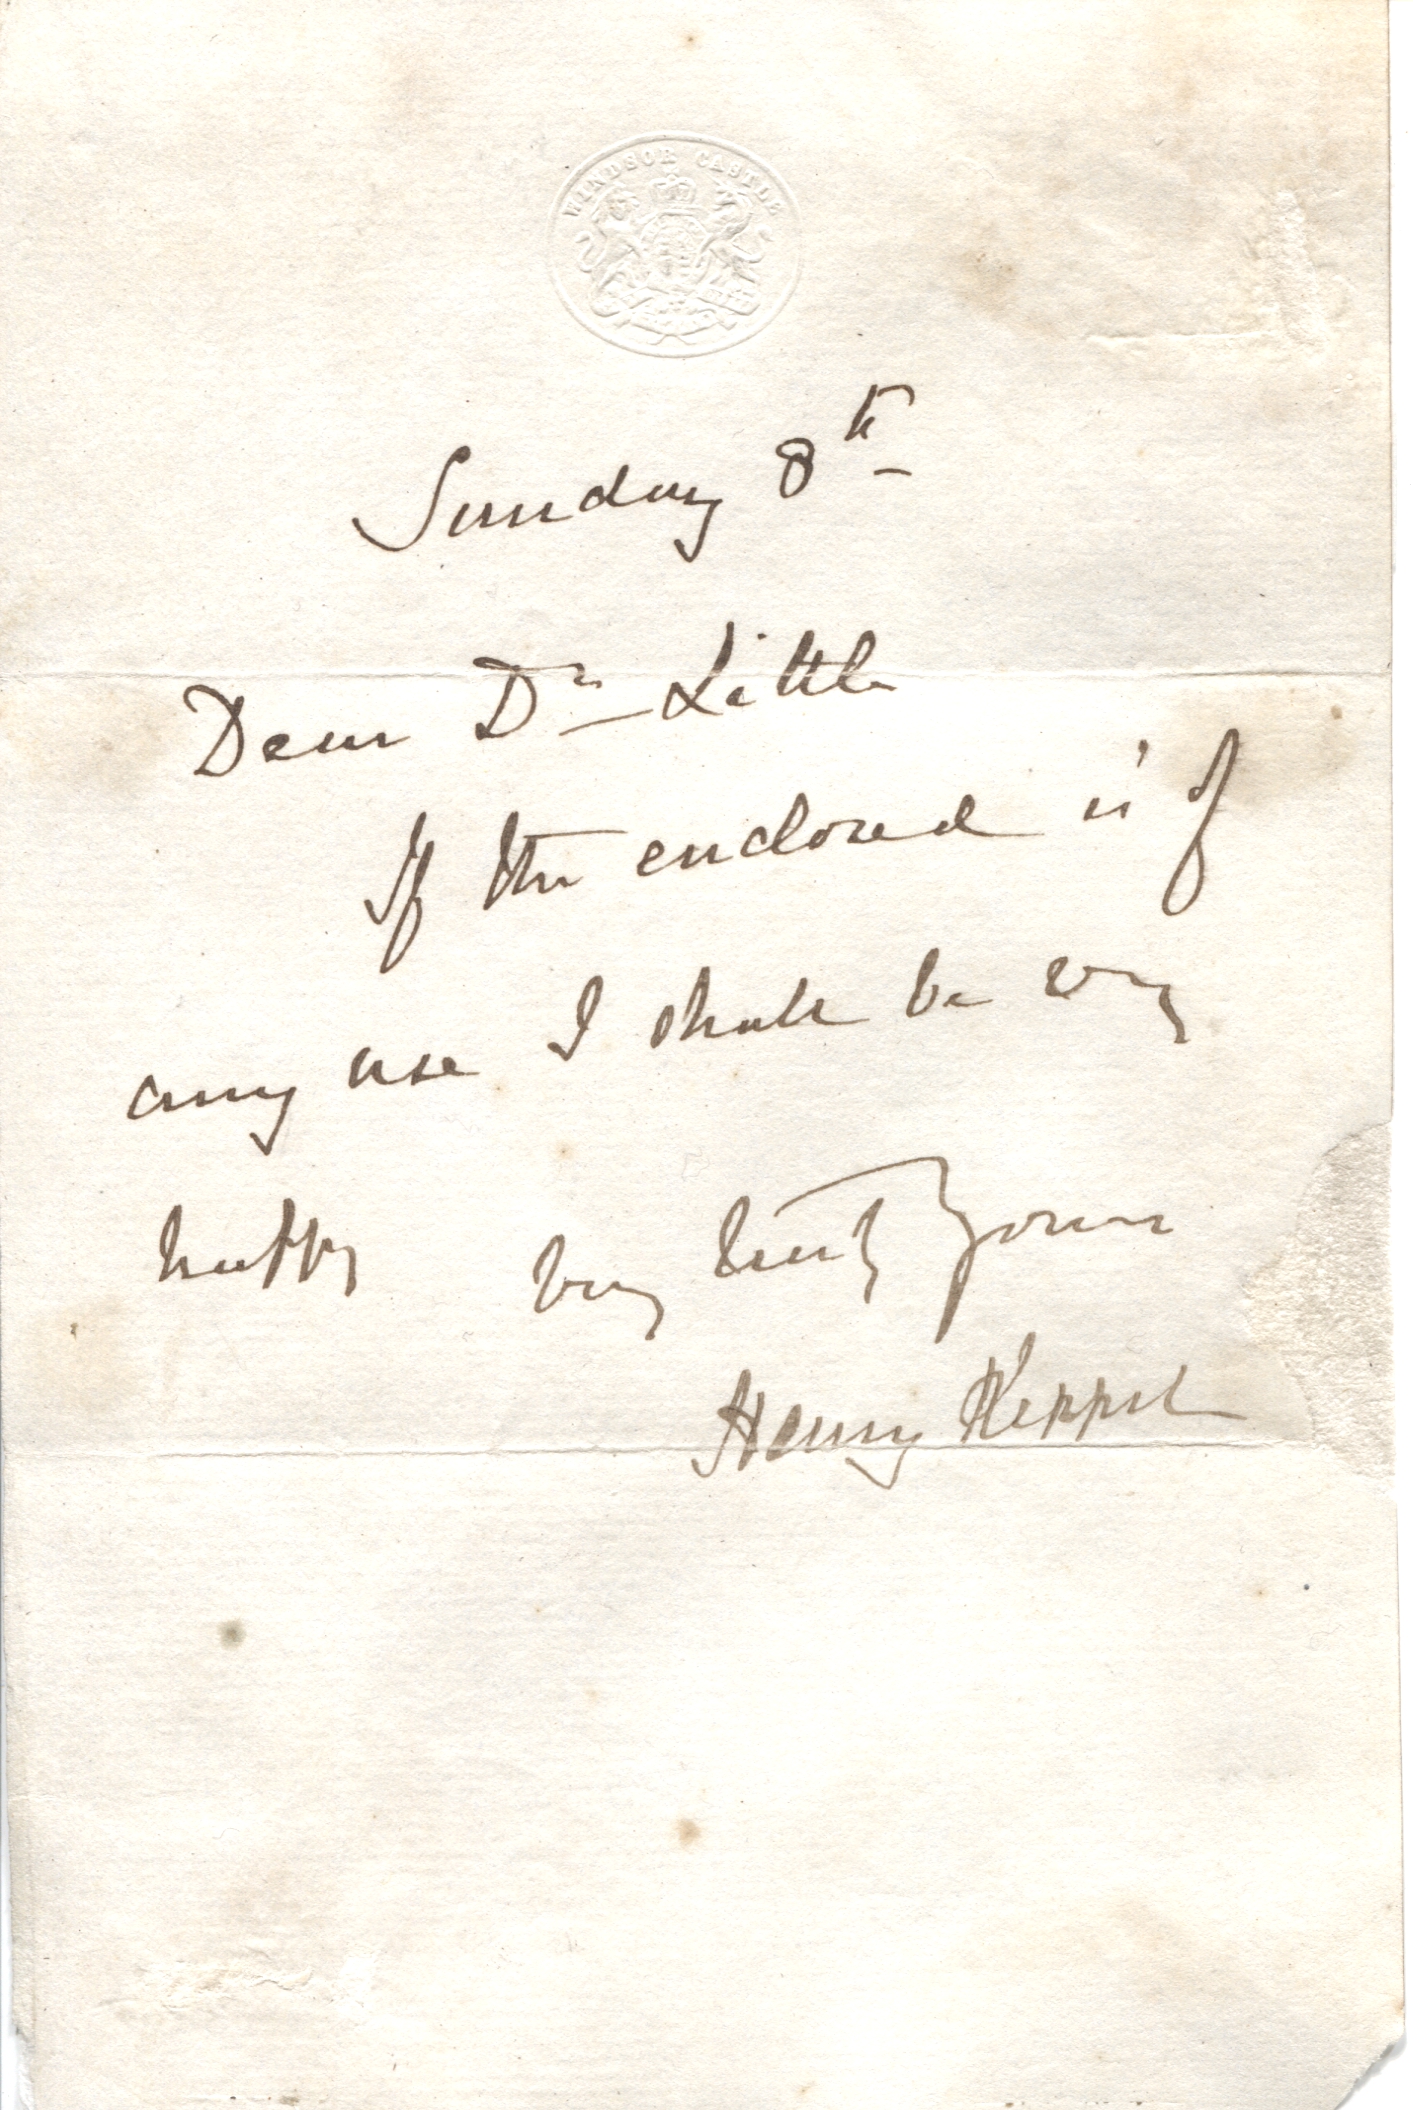 WINDSOR CASTLE
Sunday 8th
Dear Dr Little
If the enclosed is of
any use I shall be very
happy very truly yours
Henry Keppel